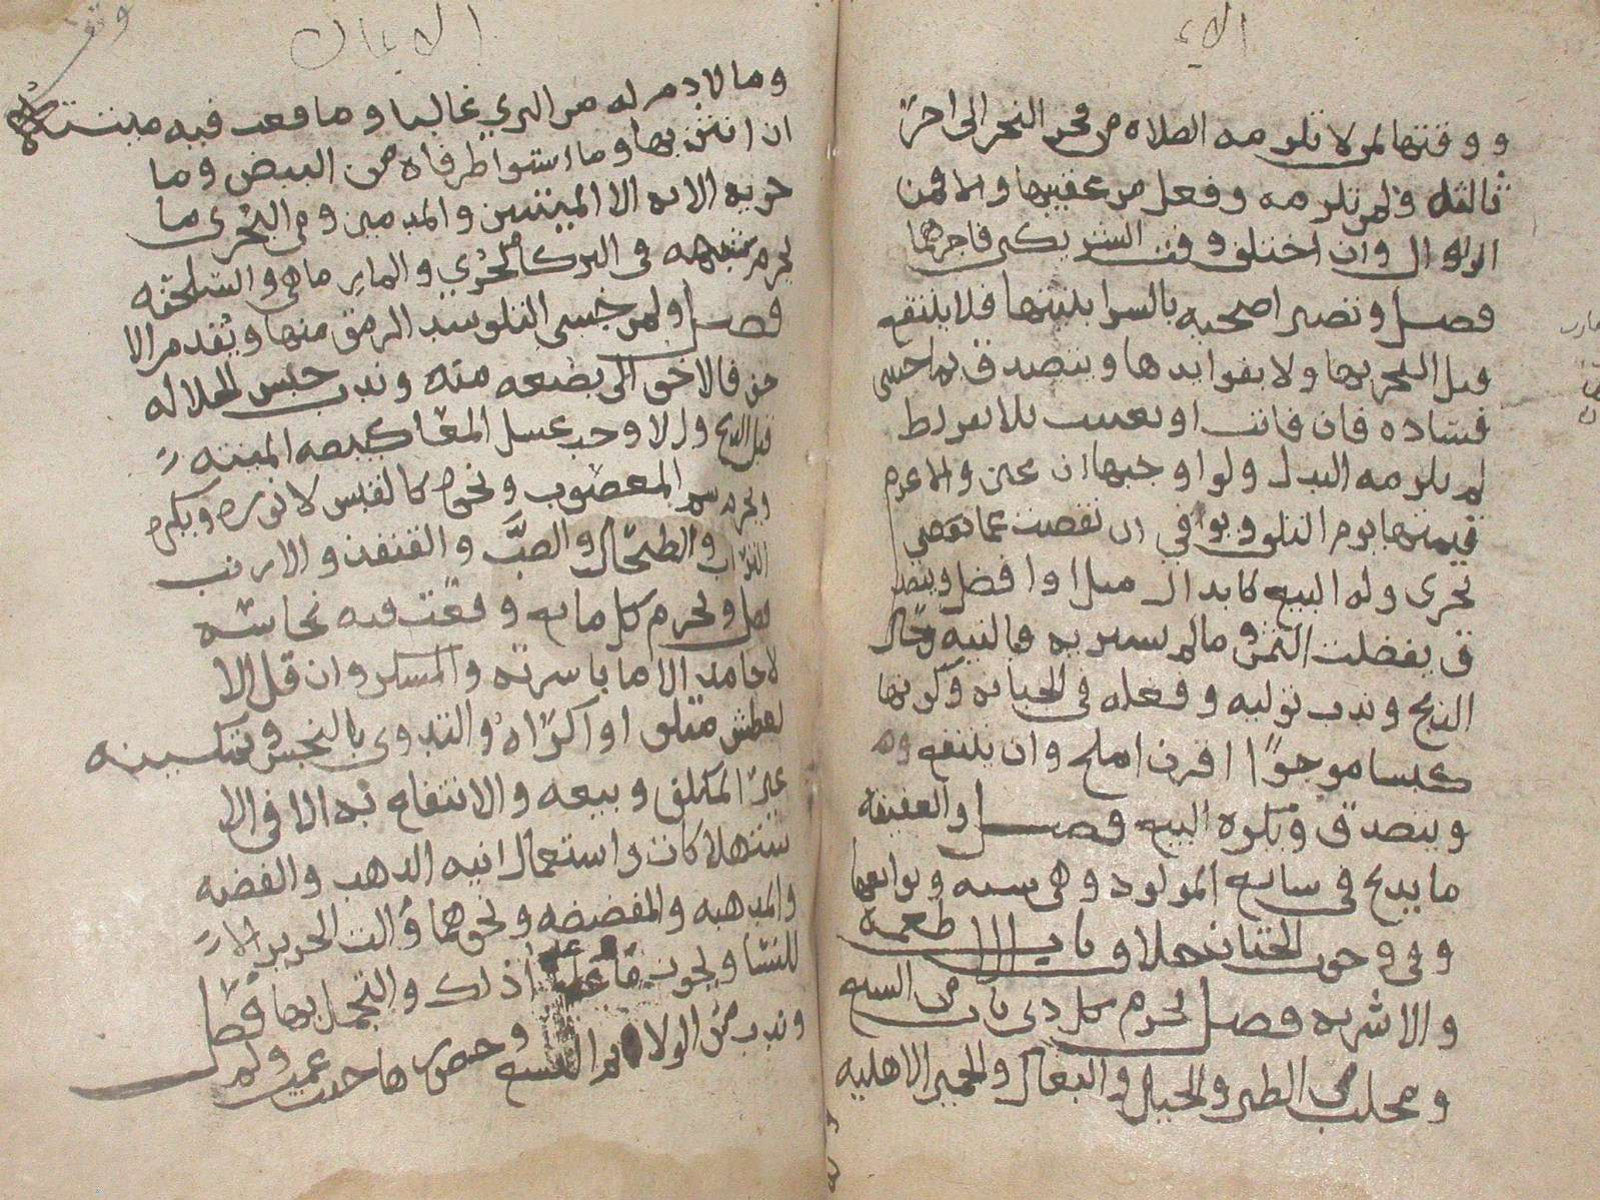 ووقتها لمن لا تلزمه الصلاة من فجر النحر الى اخر
ثالثه ولمن تلزمه وفعل من عقيبها والا فمن
الزوال وان اختلف وقت الشريكين فاخرهما
فصل وتصير اضحيه بالشرا بنيتها فلا ينتفع
قبل النحر بها ولا بفوايدها ويتصدق بما خشي
فساده فان فاتت او تعيبت بلا تفريط
لم يلزمه البدل ولو اوجبها ان عين والا غرم
قيمتها يوم التلف ويوافي ان نقصت عما
يجزي وله البيع لابدال مثل او افضل ويتصد
ق بفضلت الثمن وما لم يشتريه فبالنيه حال
الذبح وندب توليه وفعله في الجبانه وكونها
كبشا موجوًا اقرن املح وان ينتفع
ويتصدق ويكره البيع فصل والعقيقه
ما يذبح في سابع المولود وهي سنه وتوابعها
وفي وجوب الختان خلاف باب الاطعمه
والاشربه فصل يحرم كل ذي ناب من السبع
ومخلب من الطير والخيل والبغال والحمير الاهليه
الايمان
وما لا دم له من البري غالبا وما وقعت فيه ميتته
ان انتن بها وما استوا طرفاه من البيض وما
حوته الايه الا الميتتين والدمين ومن البحري ما
يحرم شبهه في البر كالجري والمارماهي والسلحفه
فصل ولمن خشي التلف سد الرمق منها ويقدم الا
خف فالاخف الى بضعه منه وندب حبس الجلاله
قبل الذبح والا وجب غسل المعا كبيضه الميته
ويحرم شم المغصوب ونحوه كالقبس لا نوره ويكره
التراب والطحال والضبَّ والقنفذ والارنب
فصل ويحرم كل مايع وقعت فيه نجاسه
لا جامد الا ما باشرته والمسكر وان قل الا
لعطش متلف او اكراه والتداوي بالنجس وتمكينه
غير المكلف وبيعه والانتفاع به الا في الا
ستهلاكات واستعمال انيه الذهب والفضه
والمذهبه والمفضضه ونحوهما والت الحرير الا
للنسا ويجوز ما عدا ذلك والتجمل بها فصل
وندب من الولايم التسع وحضورها حيث عمت ولم